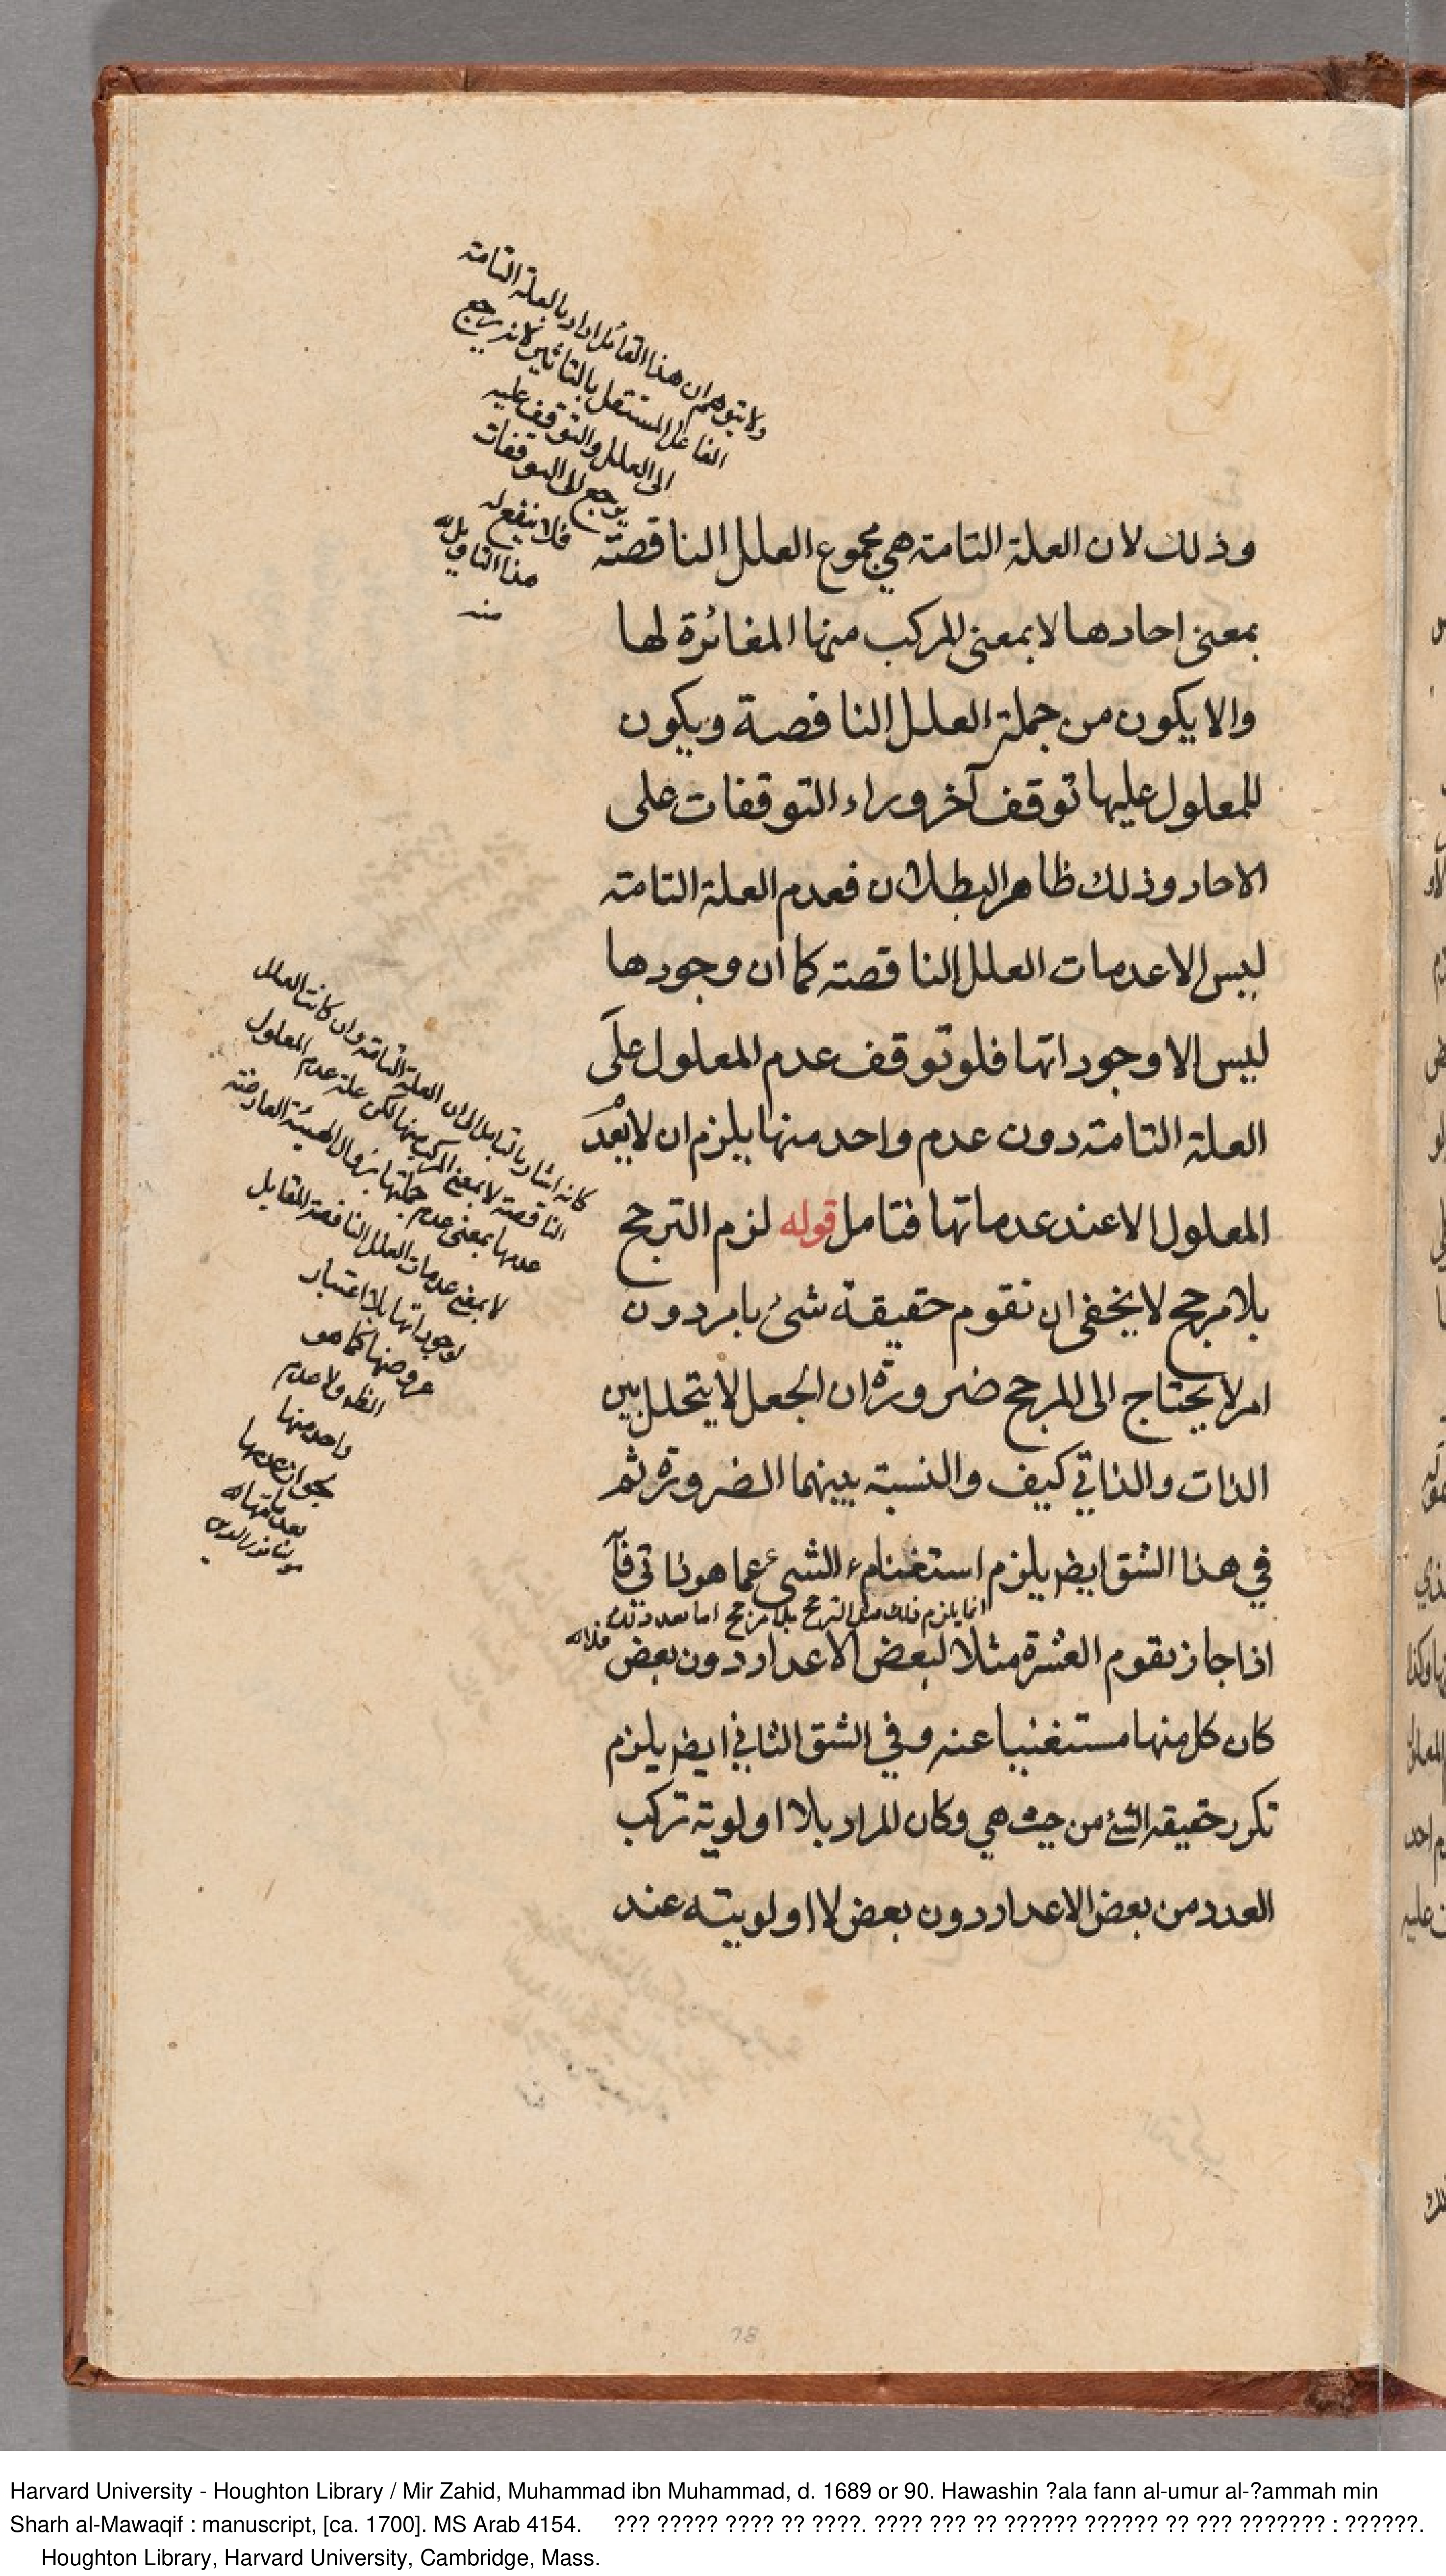 ولا يتوهم ان هذا القائل اراد بالعلة التامة
الفاعل المستقل بالتاثير لانه يرجع
الى العلل والتوقف عليه
يرجع الى التوقفات
فلا ينفع له
هذا التاويل
منه
وذلك لان العلة التامة هي مجموع العلل الناقصة
بمعنى احادها لا بمعنى المركب منها المغائرة لها
والا يكون من جملة العلل الناقصة ويكون
للمعلول عليها توقف آخر وراء التوقفات على
الاحاد وذلك ظاهر البطلان فعدم العلة التامة
ليس الا عدمات العلل الناقصة كما ان وجودها
ليس الا وجوداتها فلو توقف عدم المعلول على
العلة التامة دون عدم واحد منها يلزم ان لا يعدم
المعلول الا عند عدماتها فتامل قوله لزم الترجح
بلا مرجح لا يخفى ان تقوم حقيقة شئ بامر دون
امر لا يحتاج الى المرجح ضرورة ان الجعل لا يتخلل بين
الذات والذاتي كيف والنسبة بينهما الضرورة ثم
في هذا الشق ايضا يلزم استغناء الشئ عما هو ذاتي فآ
انما يلزم ذلك على الترجح بلا مرجح اما بعد ذلك فلا
اذا جاز تقوم العشرة مثلا لبعض الاعداد دون بعض
كان كل منها مستغنيا عنه وفي الشق الثاني ايضا يلزم
تكرر حقيقة الشئ من حيث هي وكان المراد بلا اولوية تركب
العدد من بعض الاعداد دون بعض لا اولويته عند
كانه اشار بالتامل الى ان العلة التامة وان كانت العلل
الناقصة لا بمعنى المركب منها لكن علة عدم المعلول
عدمها بمعنى عدم جملتها بزوال الهيئة العارضة
لا بمعنى عدمات العلل الناقصة المقابل
لوجوداتها بلا اعتبار
عروضها كما هو
الظ ولا عدم
واحد منها
بجواز عدمها
بعدماتها
مولينا نور الدين
78
Harvard University - Houghton Library / Mir Zahid, Muhammad ibn Muhammad, d. 1689 or 90. Hawashin ?ala fann al-umur al-?ammah min
Sharh al-Mawaqif : manuscript, [ca. 1700]. MS Arab 4154. ??? ????? ???? ?? ????. ???? ??? ?? ?????? ?????? ?? ??? ??????? : ??????.
Houghton Library, Harvard University, Cambridge, Mass.